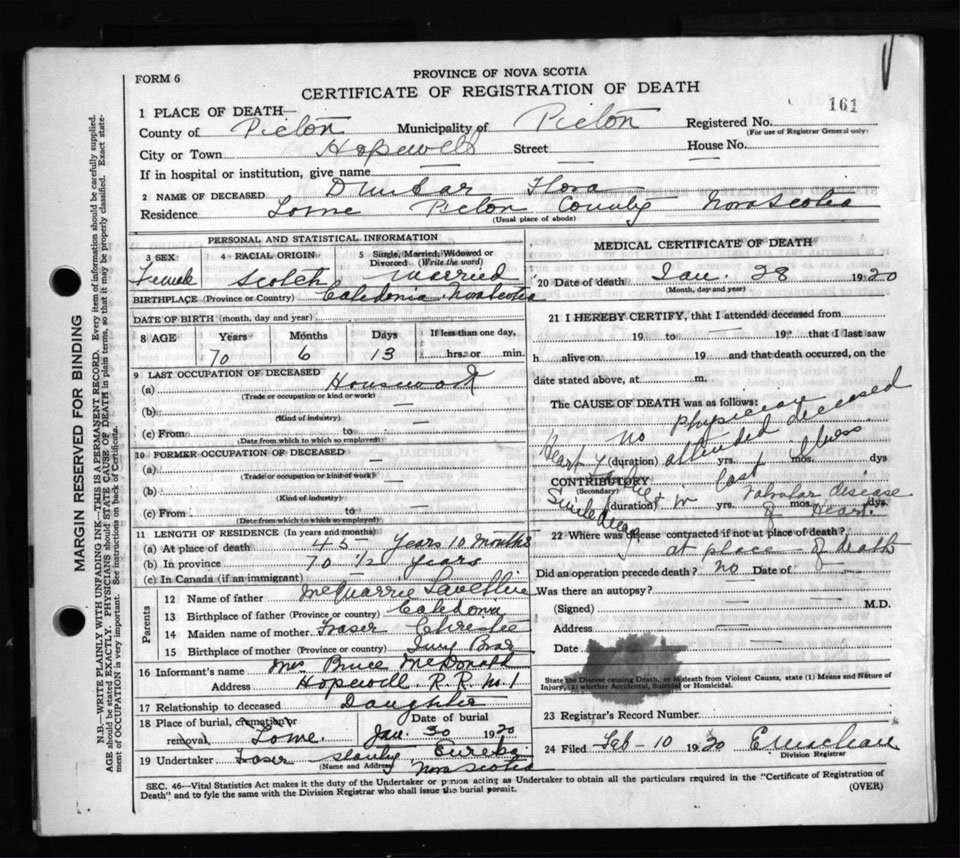 FORM 6
PROVINCE OF NOVA SCOTIA
CERTIFICATE OF REGISTRATION OF DEATH
161
1 PLACE OF DEATH—
County of Pictou Municipality of Pictou Registered No.
(For use of Registrar General only)
City or Town Hopewell Street — House No. —
If in hospital or institution, give name —
2 NAME OF DECEASED Dunbar Flora
Residence Lorne Pictou County Nova Scotia
(Usual place of abode)
PERSONAL AND STATISTICAL INFORMATION
3 SEX 4 FACIAL ORIGIN 5 Single, Married, Widowed or Divorced (Write the word)
Female Scotch married
BIRTHPLACE (Province or Country) Caledonia Nova Scotia
DATE OF BIRTH (month, day and year)
8 AGE Years Months Days If less than one day,
70 6 13 hrs. or min.
9 LAST OCCUPATION OF DECEASED
(a) Housework
(Trade or occupation or kind or work)
(b) —
(Kind of industry)
(c) From to —
(Date from which to which so employed)
10 FORMER OCCUPATION OF DECEASED —
(a) —
(Trade or occupation or kind of work)
(b) —
(Kind of industry)
(c) From to —
(Date from which to which so employed)
11 LENGTH OF RESIDENCE (In years and months)
(a) At place of death 45 years 10 months
(b) In province 70 1/2 years
(c) In Canada (if an immigrant)
Parents
12 Name of father McQuarrie
13 Birthplace of father (Province or country) Caledonia
14 Maiden name of mother Fraser Christie
15 Birthplace of mother (Province or country)
16 Informant's name Mrs Bruce McDonald
Address Hopewell R. R. No. 1
17 Relationship to deceased Daughter
18 Place of burial, cremation or removal, Lorne. Date of burial Jan. 30 1920
19 Undertaker Eureka
(Name and Address) Nova Scotia
MEDICAL CERTIFICATE OF DEATH
20 Date of death Jan. 28 1920
(Month, day and year)
21 I HEREBY CERTIFY, that I attended deceased from
19 to — 19 that I last saw
h alive on — 19 and that death occurred, on the
date stated above, at m.
The CAUSE OF DEATH was as follows:
no physician
attended deceased
(duration) yrs. mos. dys
in last illness
CONTRIBUTORY
(Secondary)
(duration) yrs. mos. dys
valvular disease
of heart.
22 Where was disease contracted if not at place of death?
at place of death
Did an operation precede death? no Date of —
Was there an autopsy? —
(Signed) — M.D.
Address —
Date —
State the Disease causing Death, or in death from Violent Causes, state (1) Means and Nature of
Injury, (2) whether Accidental, Suicidal or Homicidal.
23 Registrar's Record Number
24 Filed Feb - 10 1920
Division Registrar
SEC. 46—Vital Statistics Act makes it the duty of the Undertaker or person acting as Undertaker to obtain all the particulars required in the "Certificate of Registration of
Death" and to fyle the same with the Division Registrar who shall issue the burial permit.
(OVER)
MARGIN RESERVED FOR BINDING
N.B.—WRITE PLAINLY WITH UNFADING INK—THIS IS A PERMANENT RECORD. Every item of information should be carefully supplied.
AGE should be stated EXACTLY. PHYSICIANS should STATE CAUSE OF DEATH in plain terms, so that it may be properly classified. Exact statement
of OCCUPATION is very important. See instructions on back of Certificate.